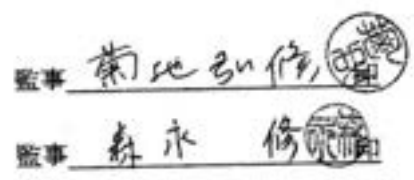 監事 菊地弘修 印
監事 森永 修 印